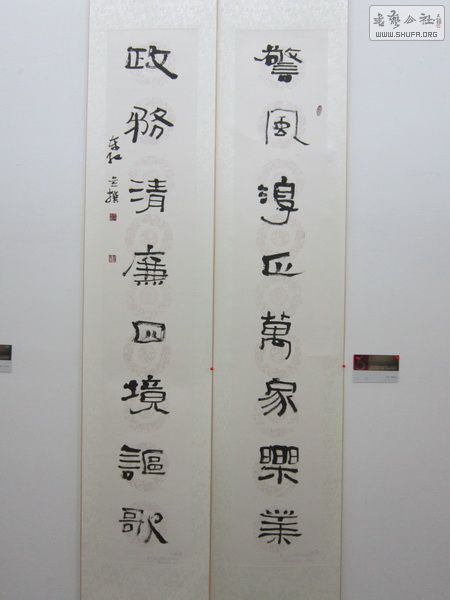 警風淳正萬家樂業
政務清廉四境謳歌
書藝公社
WWW.SHUFA.ORG